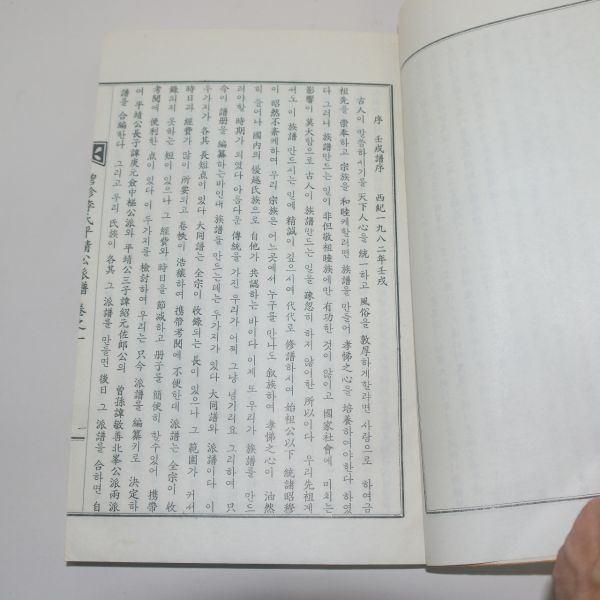 序 壬戌譜序 西紀一九八二年壬戌
古人이 말씀하시기를 天下人心을 統一하고 風俗을 敦厚하게할라면 사람으로 하여금
祖先을 崇奉하고 宗族을 和睦케할려면 族譜을 만들어 孝悌之心을 培養하여야한다 하였
다 그러나 族譜만드는 일이 非但敬祖睦族에만 有功한 것이 않이고 國家社會에 미치는
影響이 莫大함으로 古人이 族譜만드는 일을 疎忽히 하지 않이한 所以이다 우리先祖제
서도 이 族譜 만드시는 일에 精誠이 깊으시여 代代로 修譜하시여 始祖公以下 統諸昭穆
이 昭然不紊케하여 우리 宗族은 어느곳에서 누구를 만나도 叙族하여 孝悌之心이 油然
히 들어나 國內의 優越氏族으로 自他가 共認하는 바이다 이제 또 우리가 族譜를 만드
러야할 時期가 되였다 아름다운 傳統을 가진 우리가 어찌 그냥 넘기리요 그리하여 只
今이 譜册을 編纂하는바인대 族譜을 만드는데는 두가지가 있다 大同譜와 派譜이다 이
두가지가 各其 長短点이 있다 大同譜는 全宗이 收録되는 長이 있으나 그 範圍가 커서
時日과 經費가 많이 所要되고 卷帙이 浩穰하여 携帶考閱에 不便한대 派譜는 全宗이 收
錄되지 못하는 短이 있으나 그 經費와 時日을 節减하고 册子를 簡便히 할수있어 携帶
考閱에 便利한 点이 있다 이 두가지를 檢討하여 우리는 只今 派譜를 編纂키로 決定하
여 平靖公長子諱庚元僉中樞公派와 平靖公三子諱紹元佐郎公의 曾孫諱敬善北峯公派両派
譜을 合編한다 그리고 우리 氏族이 各其 그 派譜을 만들면 後日 그 派譜을 合하면 自
李氏平靖公派譜 卷之一